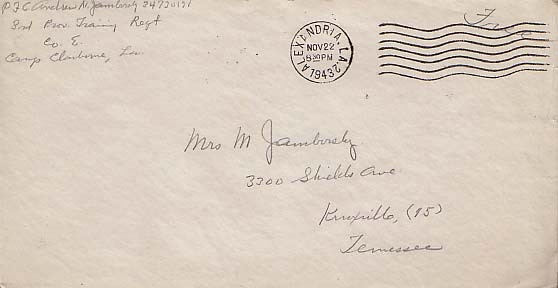 PFC Andrew N. Jambosky 34730151
3rd Prov. Training Regt
Co. E.
Camp Claiborne, La.
Free
ALEXANDRIA, LA.
NOV 22
8 30 PM
1943
Mrs M Jambosky
3300 Shields Ave
Knoxville, (15)
Tennessee